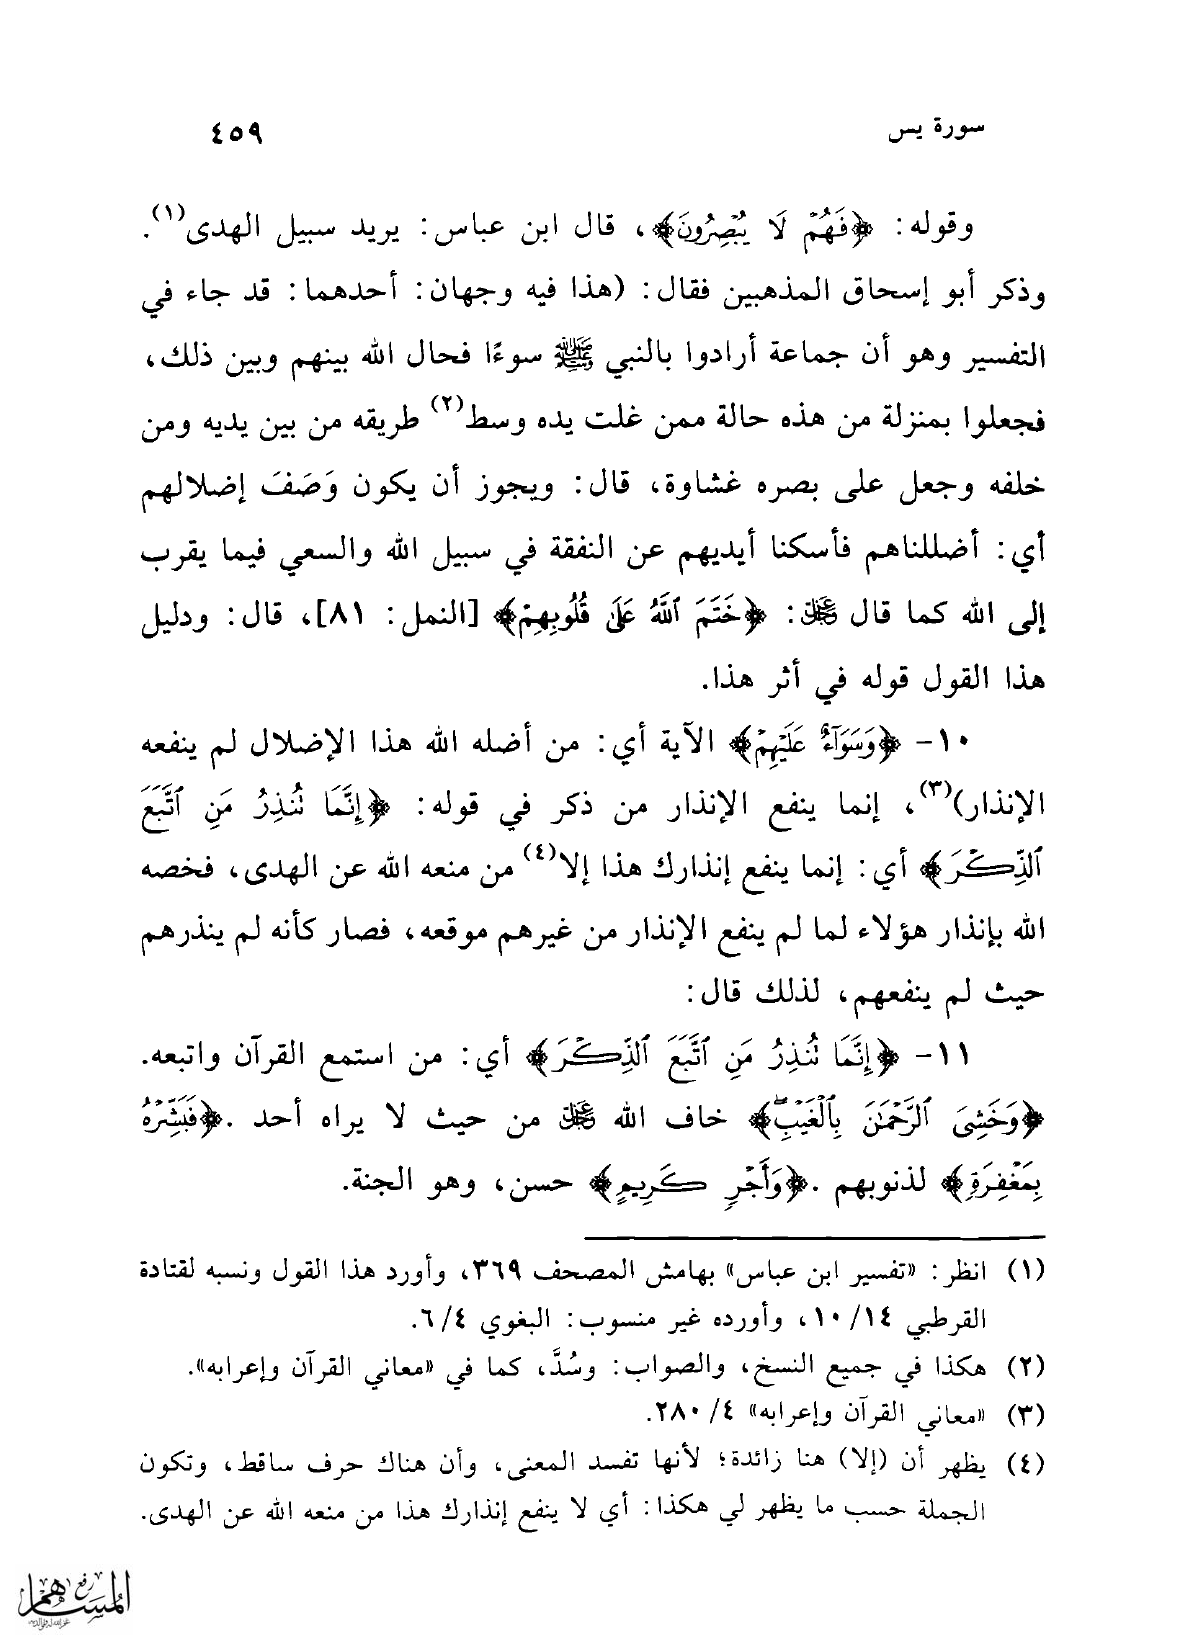 سورة يس ٤٥٩
وقوله: ﴿فَهُمْ لَا يُبْصِرُونَ﴾، قال ابن عباس: يريد سبيل الهدى(١).
وذكر أبو إسحاق المذهبين فقال: (هذا فيه وجهان: أحدهما: قد جاء في
التفسير وهو أن جماعة أرادوا بالنبي ﷺ سوءًا فحال الله بينهم وبين ذلك،
فجعلوا بمنزلة من هذه حالة ممن غلت يده وسط(٢) طريقه من بين يديه ومن
خلفه وجعل على بصره غشاوة، قال: ويجوز أن يكون وَصَفَ إضلالهم
أي: أضللناهم فأسكنا أيديهم عن النفقة في سبيل الله والسعي فيما يقرب
إلى الله كما قال عز وجل: ﴿خَتَمَ ٱللَّهُ عَلَىٰ قُلُوبِهِمْ﴾ [النمل: ٨١]، قال: ودليل
هذا القول قوله في أثر هذا.
١٠- ﴿وَسَوَآءٌ عَلَيْهِمْ﴾ الآية أي: من أضله الله هذا الإضلال لم ينفعه
الإنذار)(٣)، إنما ينفع الإنذار من ذكر في قوله: ﴿إِنَّمَا تُنذِرُ مَنِ ٱتَّبَعَ
ٱلذِّكْرَ﴾ أي: إنما ينفع إنذارك هذا إلا(٤) من منعه الله عن الهدى، فخصه
الله بإنذار هؤلاء لما لم ينفع الإنذار من غيرهم موقعه، فصار كأنه لم ينذرهم
حيث لم ينفعهم، لذلك قال:
١١- ﴿إِنَّمَا تُنذِرُ مَنِ ٱتَّبَعَ ٱلذِّكْرَ﴾ أي: من استمع القرآن واتبعه.
﴿وَخَشِىَ ٱلرَّحْمَٰنَ بِٱلْغَيْبِ﴾ خاف الله عز وجل من حيث لا يراه أحد .﴿فَبَشِّرْهُ
بِمَغْفِرَةٍ﴾ لذنوبهم .﴿وَأَجْرٍ كَرِيمٍ﴾ حسن، وهو الجنة.
(١) انظر: «تفسير ابن عباس» بهامش المصحف ٣٦٩، وأورد هذا القول ونسبه لقتادة
القرطبي ١٤/ ١٠، وأورده غير منسوب: البغوي ٤/ ٦.
(٢) هكذا في جميع النسخ، والصواب: وسُدَّ، كما في «معاني القرآن وإعرابه».
(٣) «معاني القرآن وإعرابه» ٤/ ٢٨٠.
(٤) يظهر أن (إلا) هنا زائدة؛ لأنها تفسد المعنى، وأن هناك حرف ساقط، وتكون
الجملة حسب ما يظهر لي هكذا: أي لا ينفع إنذارك هذا من منعه الله عن الهدى.
رفع
المساهم